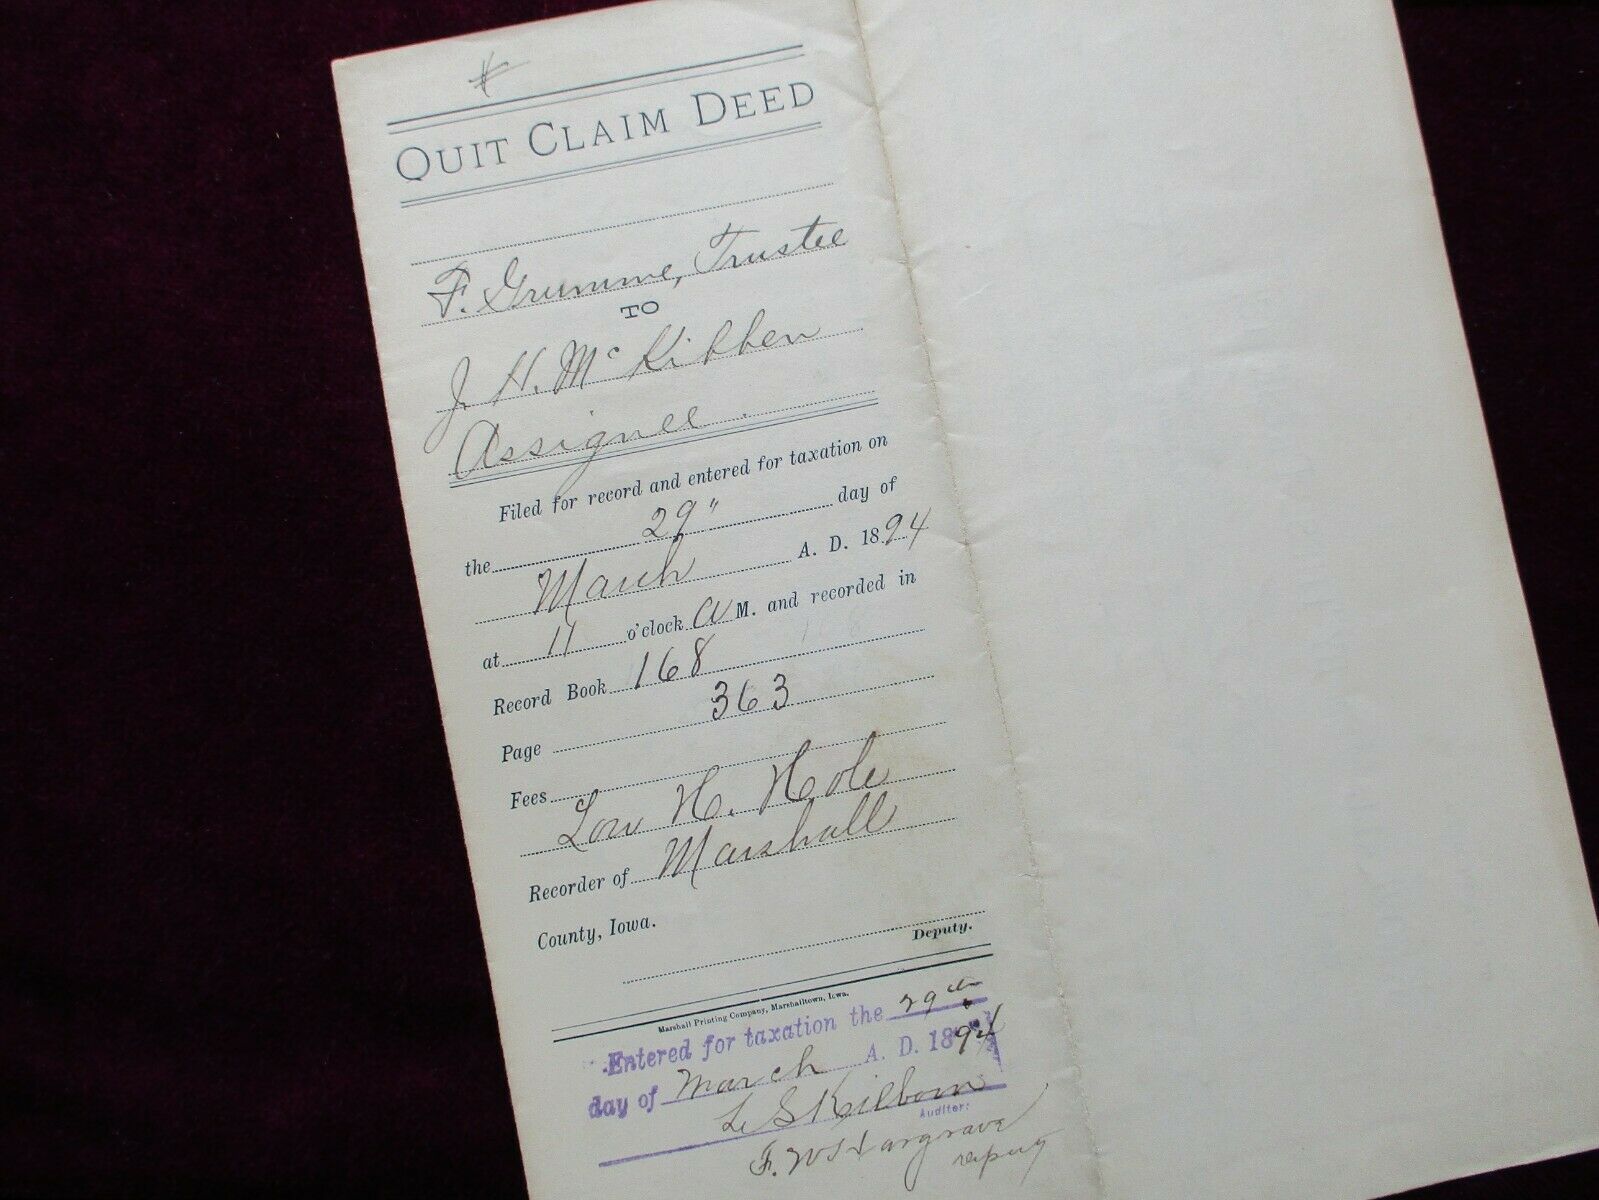 QUIT CLAIM DEED
F. Grumme, Trustee
TO
J. H. McKibben
Assignee.
Filed for record and entered for taxation on
the 29" day of
March A. D. 1894
at 11 o'clock A M. and recorded in
Record Book 168
Page 363
Fees
Lou H. Hole
Recorder of Marshall
County, Iowa.
Deputy.
Marshall Printing Company, Marshalltown, Iowa.
Entered for taxation the 29th
day of March A. D. 1894
L S Kilborn
Auditor:
F. W. Hargrave
Deputy